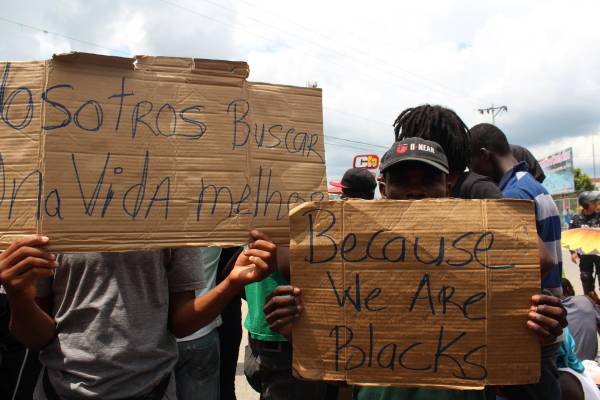 Nosotros Buscar
Una Vida melhor
Because
We Are
Blacks